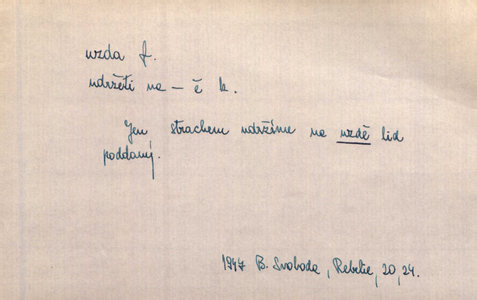 uzda f.
udržeti na – ě k.
Jen strachem udržíme na uzdě lid
poddaný.
1947 B. Svoboda, Rebelie, 20, 24.